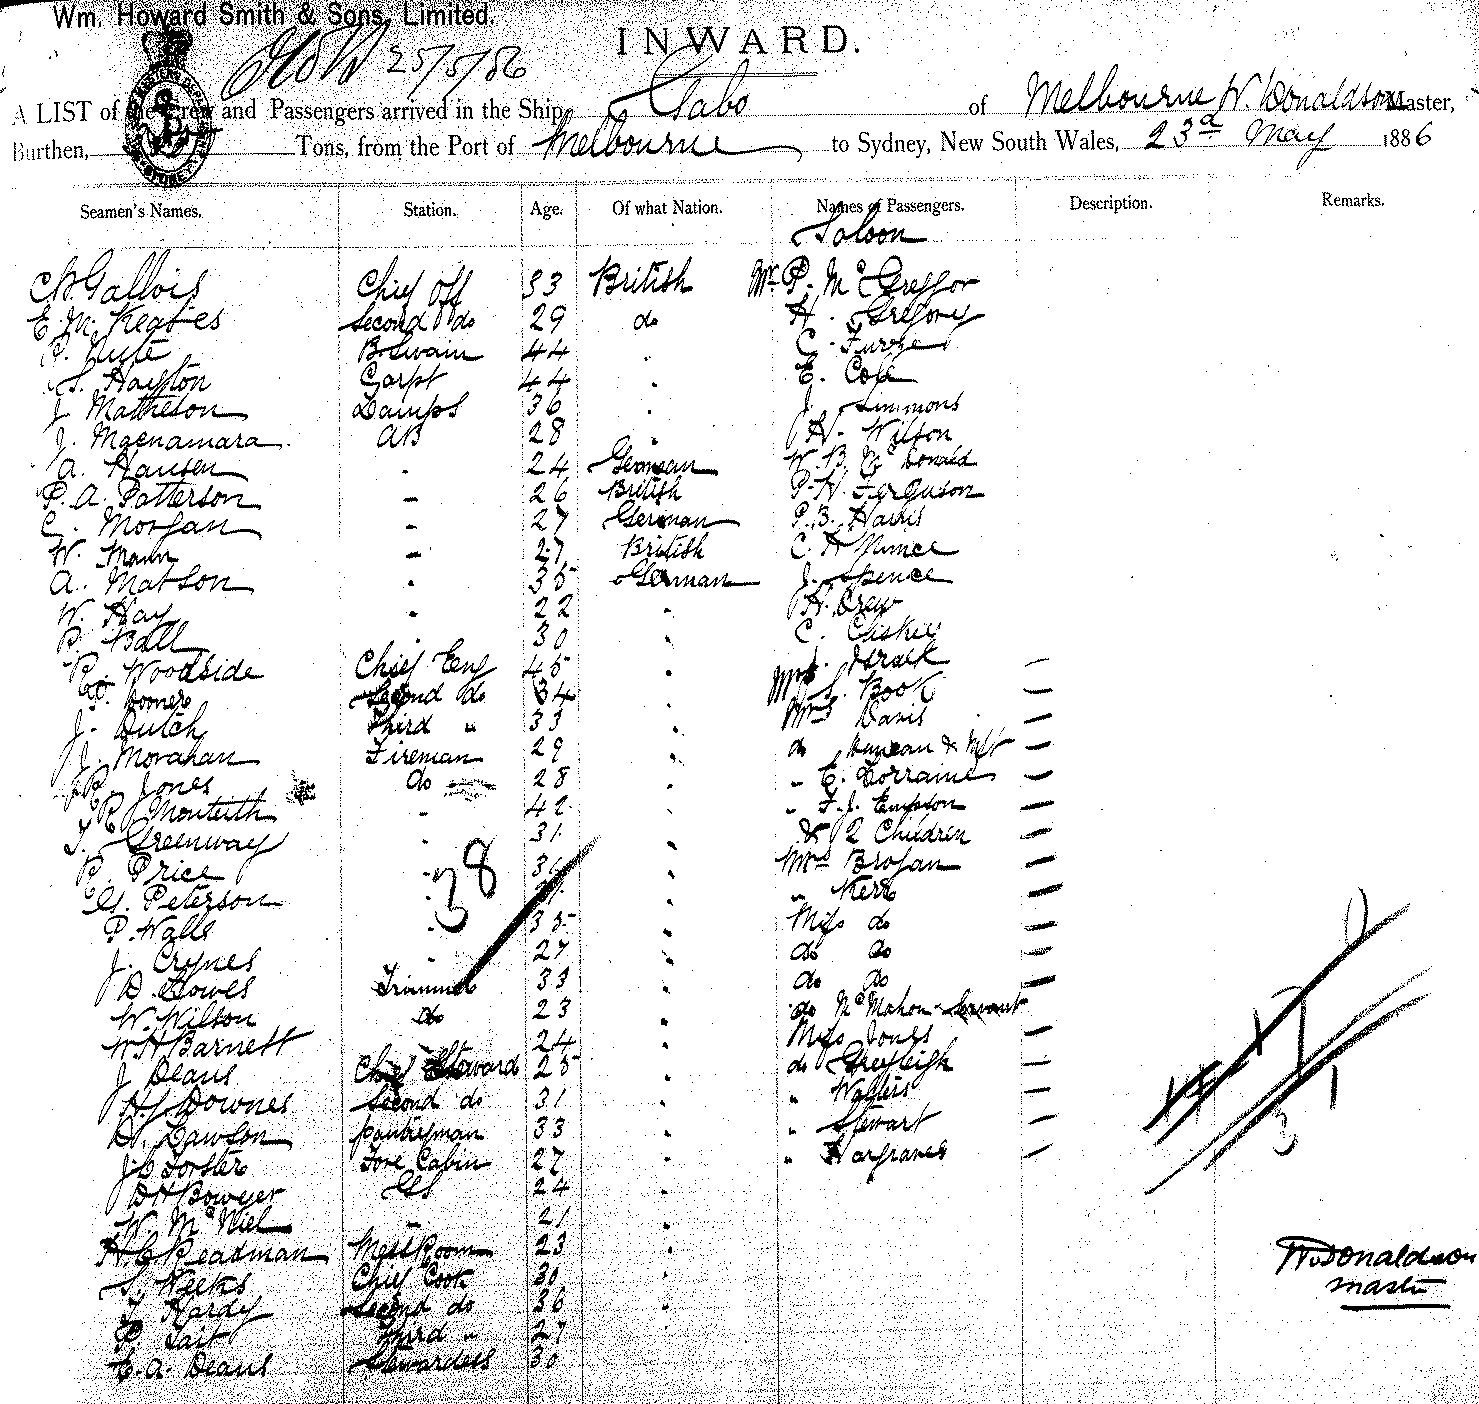 Wm. Howard Smith & Sons, Limited.
25/5/86
INWARD.
A LIST of the Crew and Passengers arrived in the Ship Gabo of Melbourne W. Donaldson Master,
Burthen, Tons, from the Port of Melbourne to Sydney, New South Wales, 23rd May 1886
Seamen's Names. Station. Age. Of what Nation. Names of Passengers. Description. Remarks.
Saloon
Gallois Chief Off 33 British Mr P. McGregor
E. M. Keaties Second do 29 do H. Gregory
B Swain 44 " C.
S. Hayton Carpt 44 " E. Cope
J. Matheson Lamps 36 " J. Simmons
J. Macnamara AB 28 " H. Wilson
A. Hansen " 24 German W. B. McDonald
P. A. Patterson " 26 British P. H. Ferguson
C. Morgan " 27 German P. B. Harris
W. Mann " 27 British C. H.
A. Matson " 35 German J. Spence
W. Hay " 22 " H. Crew
P. Ball " 30 " C.
R. Woodside Chief Eng 45 "
Second do 34 " S. Book
J. Dutch Third " 33 " Mrs Davis
J. Monahan Fireman 29 " do Duncan &
R. Jones do 28 " " C. Lorraine
R. Monteith " 42 " " F. J. Empson
T. Greenway " 31 " & 2 Children
P. Price " " Mrs Brogan
G. Peterson " " " Kerr
P. Walls " 35 " Miss do
J. Crynes " 27 " do do
D. Bowes Trimmer 33 " do do
W. Wilson do 23 " do McMahon Servant
W H Barnett 24 " Miss Jones
J Deans Chief Steward 25 " do Greyleigh
H. J. Downes Second do 31 " " Walters
H. Lawson Pantryman 33 " " Stewart
J C Forster Fore Cabin 27 " " Hargraves
D H Bowyer GS 24 "
W. McNiel " 21 "
H. C. Readman Mess Room 23 "
S. Weeks Chief Cook 30 "
T. Hardy Second do 36 "
P. Tait Third " 27 "
E. A. Deans Stewardess 30
38
W. Donaldson
Master